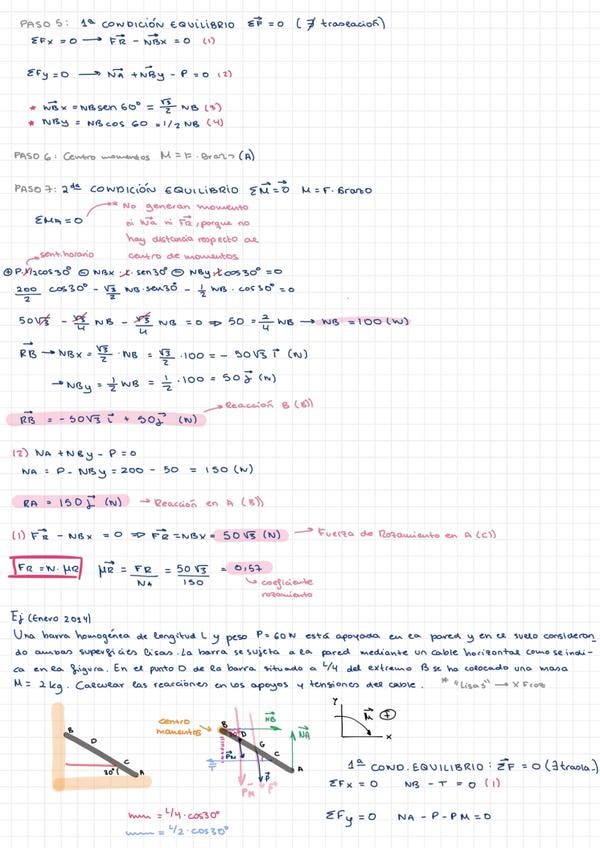 PASO 5: 1ª CONDICIÓN EQUILIBRIO ΣF⃗=0 (∄ traslación)
ΣFx = 0 → F⃗R - N⃗Bx = 0 (1)
ΣFy=0 → N⃗A + N⃗By - P = 0 (2)
* N⃗Bx = NB sen 60° = √3/2 NB (3)
* NBy = NB cos 60 = 1/2 NB (4)
PASO 6: Centro momentos M = F. Brazo (A)
PASO 7: 2da CONDICIÓN EQUILIBRIO ΣM⃗=0⃗ M = F. Brazo
ΣMA=0
No generan momento
ni N⃗a ni F⃗R, porque no
hay distancia respecto al
centro de momentos
sent. horario
⊕ P.L/2 cos30° ⊖ NBx.L.sen30° ⊖ NBy.L cos30° = 0
200/2 cos30° - √3/2 NB.sen30 - 1/2 NB. cos30° = 0
50√3 - √3/4 NB - √3/4 NB = 0 ⇒ 50 = 2/4 NB → NB = 100 (N)
R⃗B → NBx = √3/2 · NB = √3/2 · 100 = - 50√3 i⃗ (N)
→ NBy = 1/2 NB = 1/2 · 100 = 50 j⃗ (N)
Reacción B (B))
R⃗B = - 50√3 i⃗ + 50j⃗ (N)
(2) NA + NBy - P = 0
NA = P - NBy = 200 - 50 = 150 (N)
RA = 150 j⃗ (N) → Reacción en A (B))
(1) F⃗R - NBx = 0 ⇒ F⃗R = NBx = 50√3 (N) → Fuerza de Rozamiento en A (C))
FR = N. μR μ⃗R = FR/NA = 50√3/150 = 0,57
coeficiente
rozamiento
Ej (Enero 2014)
Una barra homogénea de longitud L y peso P = 60 N está apoyada en la pared y en el suelo consideran
do ambas superficies lisas. La barra se sujeta a la pared mediante un cable horizontal como se indi-
ca en la figura. En el punto D de la barra situado a L/4 del extremo B se ha colocado una masa
M = 2 kg. Calcular las reacciones en los apoyos y tensiones del cable. * "Lisas" → X Froz
B D C 30° A
centro
momentos
B N⃗B N⃗A 30° D G C T⃗ P⃗M P⃗ A
PM P⃗
Y M⃗ ⊕ X
1ª COND. EQUILIBRIO: ΣF⃗ = 0 (∄ trasla.)
ΣFx = 0 NB - T = 0 (1)
ΣFy = 0 NA - P - PM = 0
= L/4 . cos30°
= L/2 . cos30°